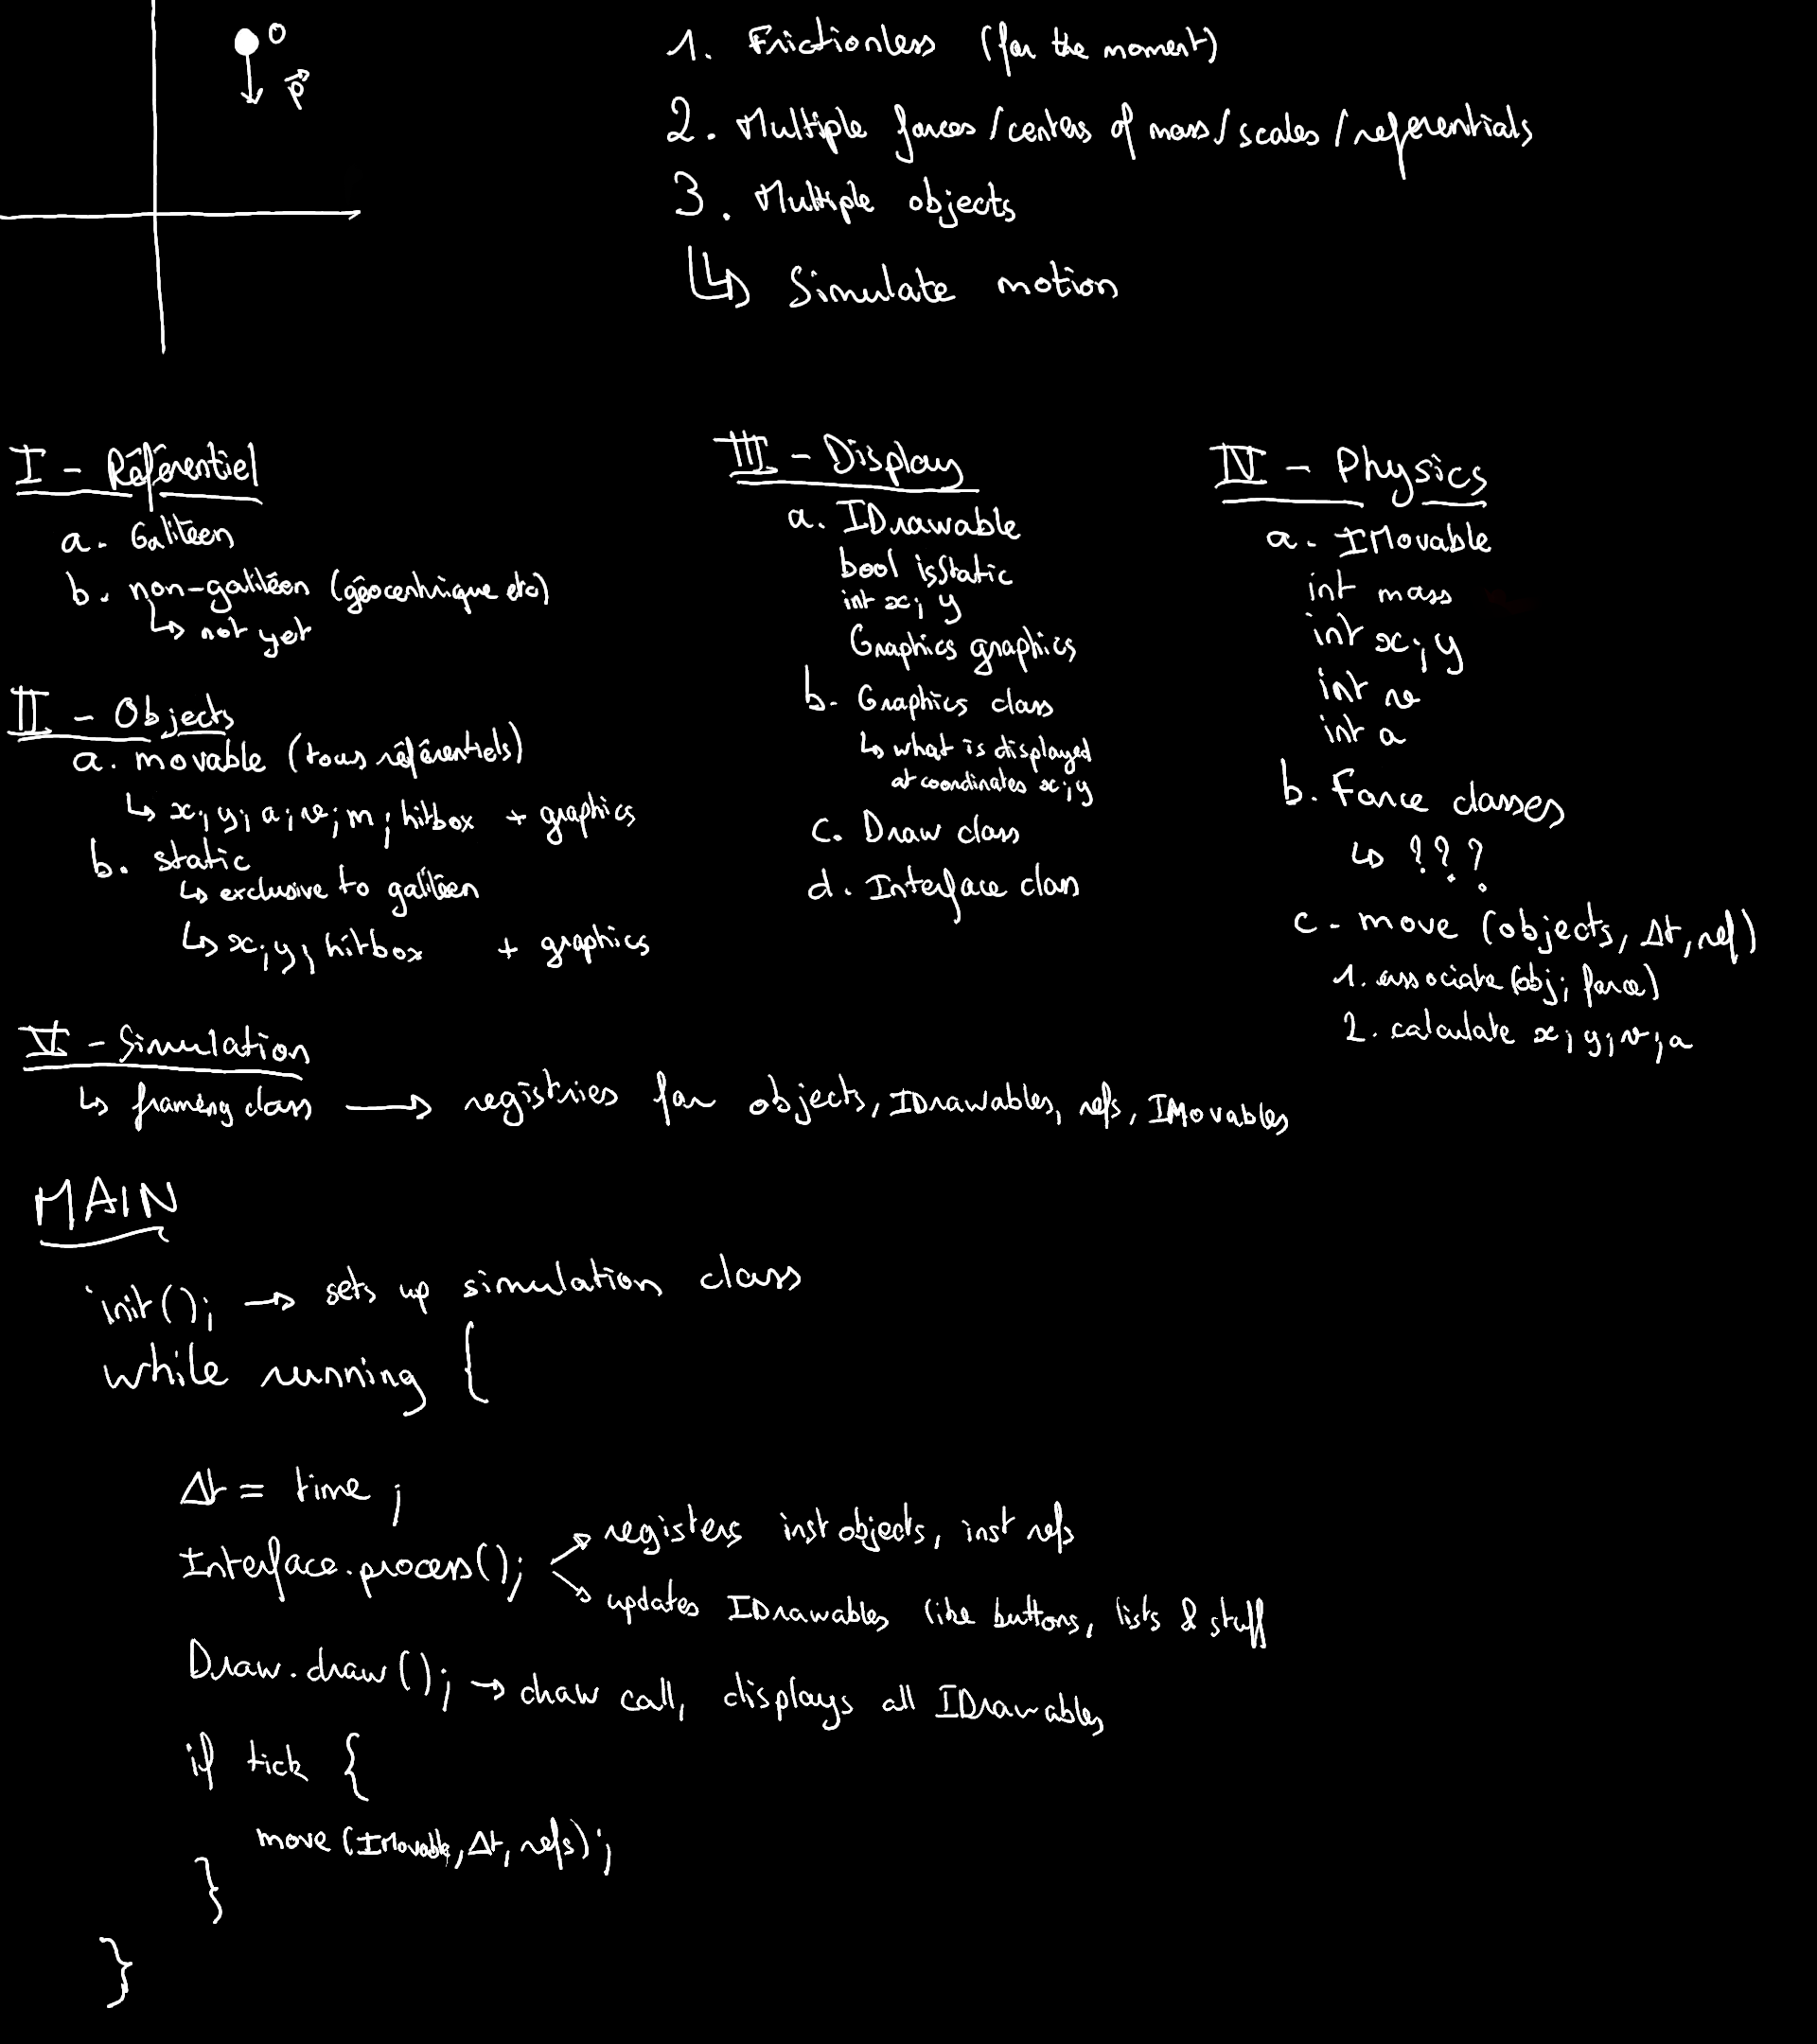 O
p
1. Frictionless (for the moment)
2. Multiple forces/centers of mass/scales/referentials
3. Multiple objects
↳ Simulate motion
I - Référentiel
a. Galiléen
b. non-galiléen (géocentrique etc)
↳ not yet
II - Objects
a. movable (tous référentiels)
↳ x; y; a; v; m; hitbox + graphics
b. static
↳ exclusive to galiléen
↳ x; y; hitbox + graphics
III - Display
a. IDrawable
bool isStatic
int x; y
Graphics graphics
b. Graphics class
↳ what is displayed
at coordinates x; y
c. Draw class
d. Interface class
IV - Physics
a. IMovable
int mass
int x; y
int v
int a
b. Force classes
↳ ???
c - move (objects, Δt, ref)
1. associate (obj; force)
2. calculate x; y; v; a
V - Simulation
↳ framing class → registries for objects, IDrawables, refs, IMovables
MAIN
init(); → sets up simulation class
while running {
Δt = time ;
Interface.process(); → registers inst objects, inst refs
→ updates IDrawables like buttons, lists & stuff
Draw.draw(); → draw call, displays all IDrawables
if tick {
move (IMovable, Δt, refs);
}
}